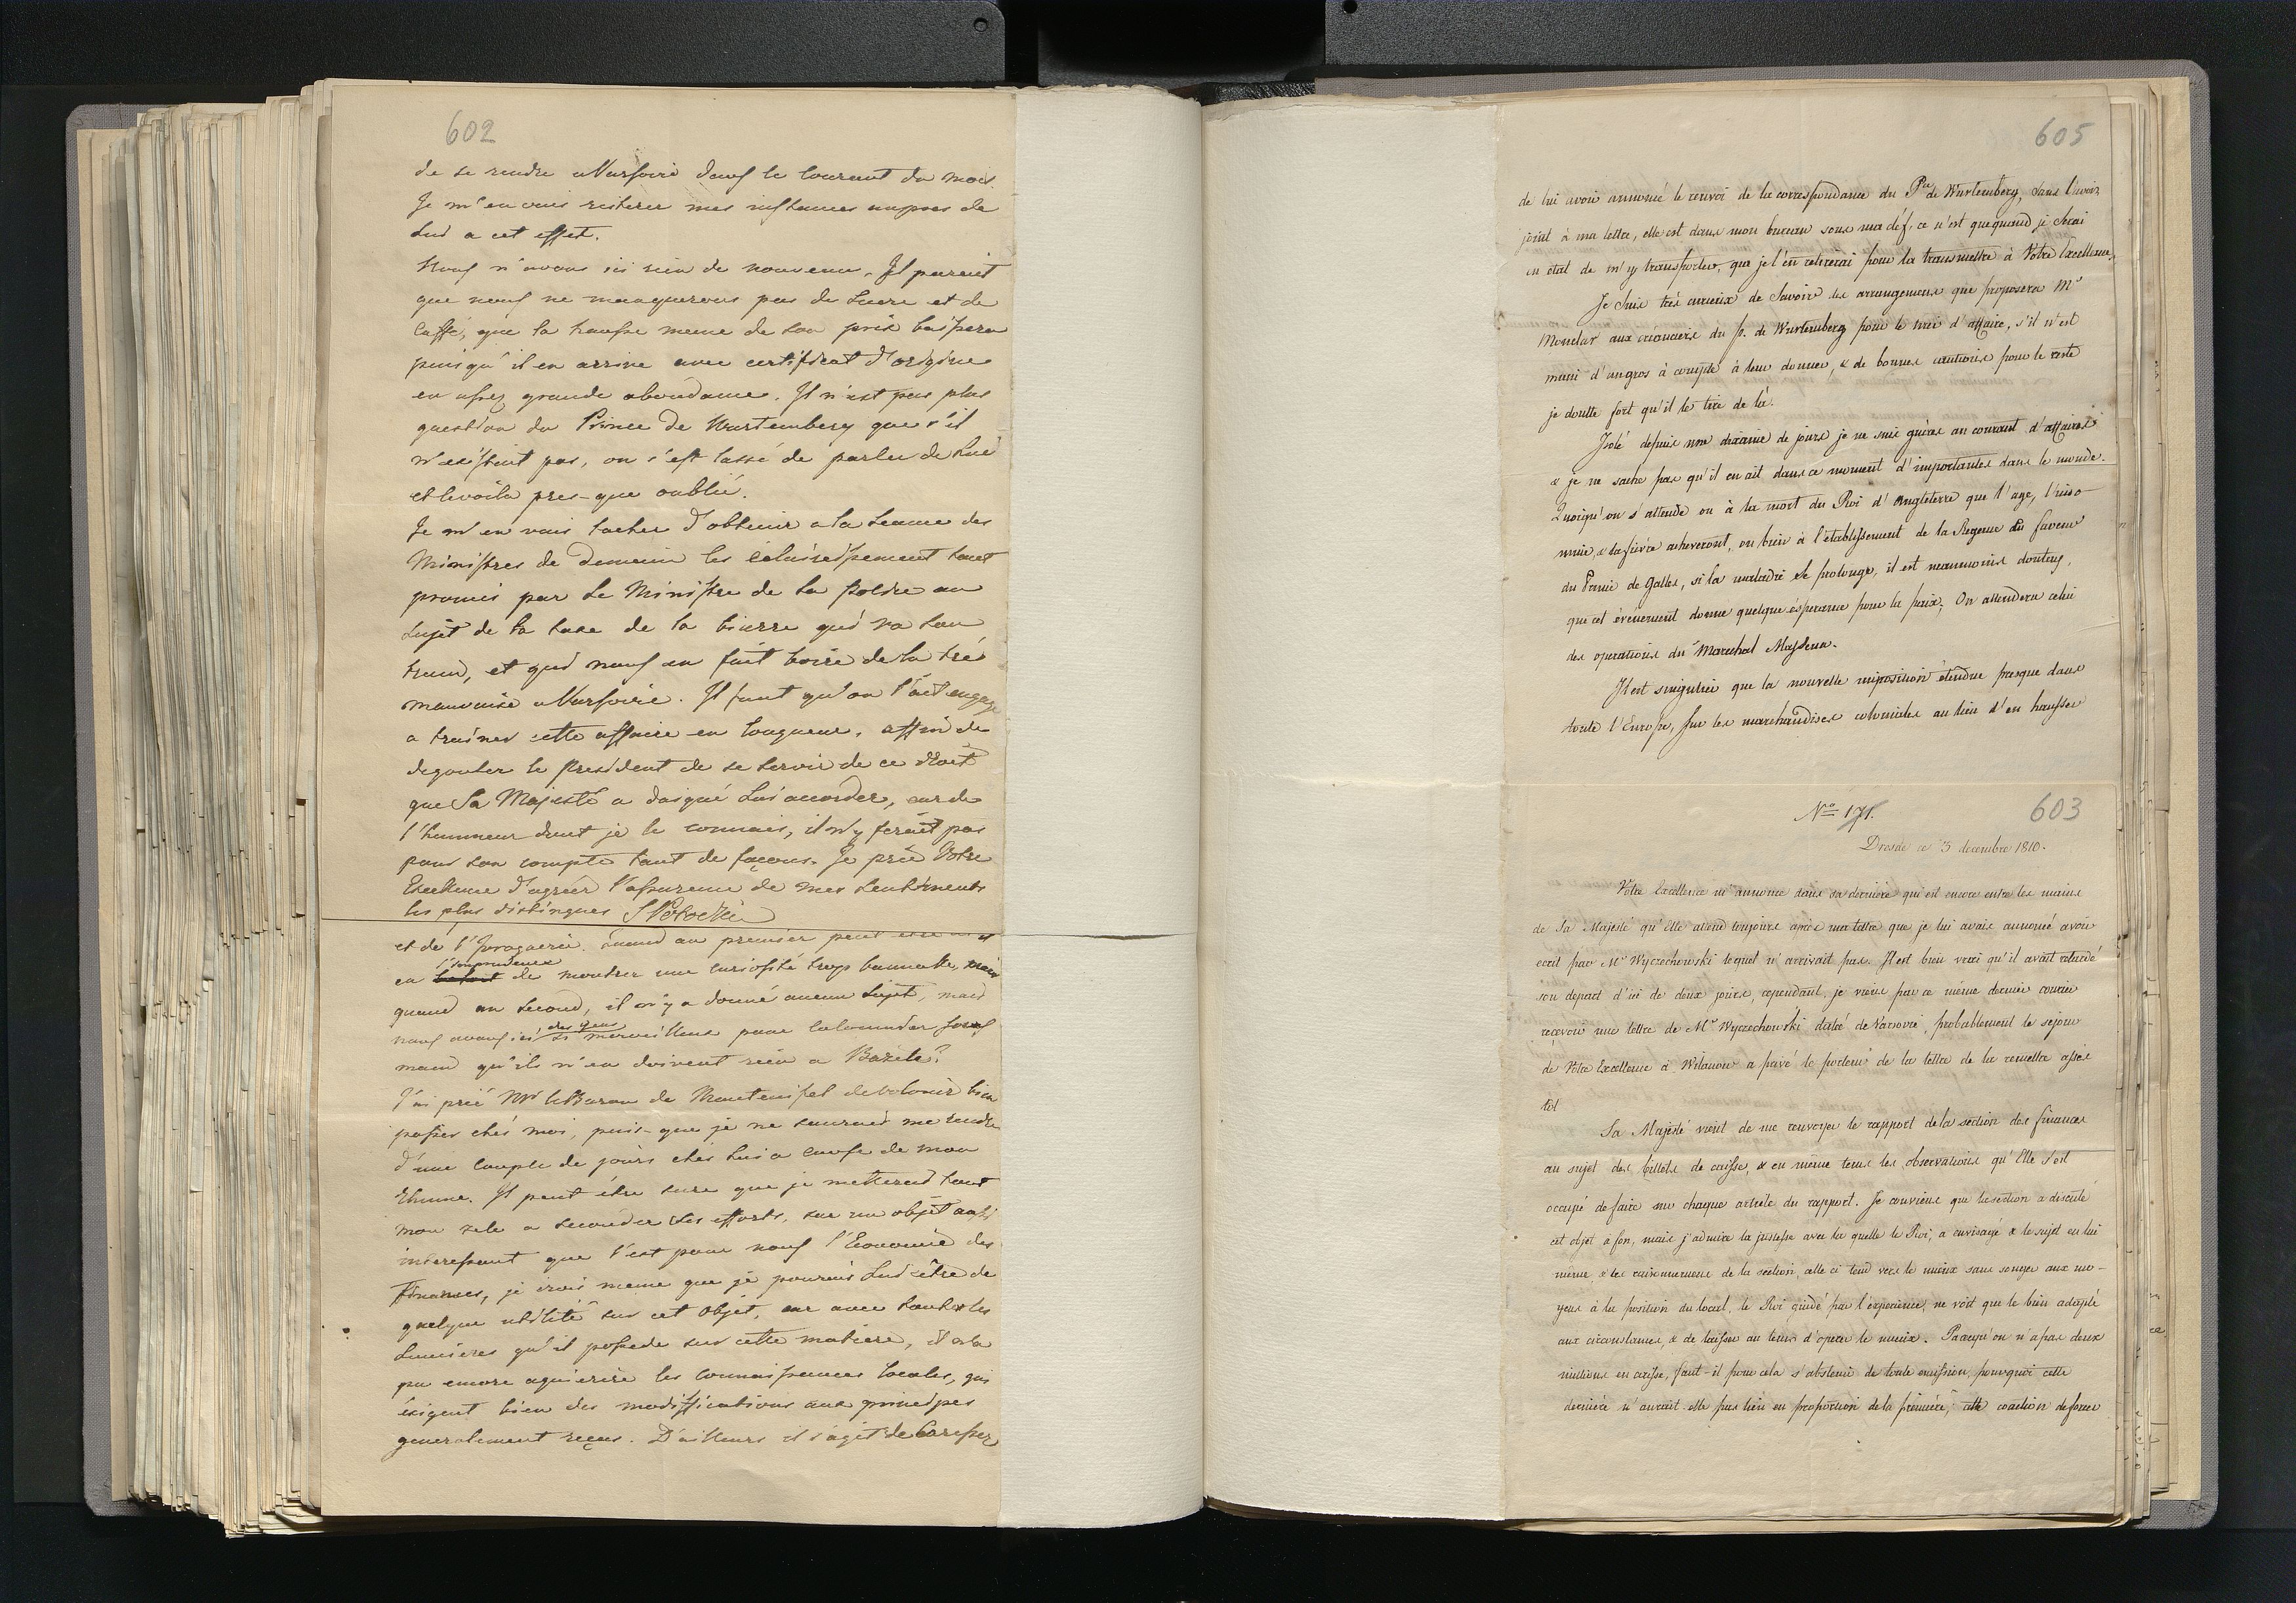 602
de se rendre a Varsovie dans le courant du mois.
Je m'en vais reiterer mes instances aupres de
Lui a cet effet.
Nous n'avons ici rien de nouveau. Il parait
que nous ne manquerons pas de sucre et de
Caffé, que la hausse meme de son prix baissera
puisqu'il en arrive avec certificat d'origine
en assez grande abondance. Il n'est pas plus
question du Prince de Wurtemberg que s'il
n'existait pas, on s'est lassé de parler de Lui
et le voila pres-que oublié.
Je m'en vais tacher d'obtenir a la seance des
Ministres de demain les éclaircissement tant
promis par le Ministre de la Police au
sujet de la taxe de la bierre qui va son
train, et qui nous en fait boire de la tré
mauvaise a Varsovie. Il faut qu'on l'ait engagé
a trainer cette affaire en longueur, affin de
degouter le President de se servir de ce droit
que Sa Majesté a daigné Lui accorder, car de
l'hummeur dont je le connais, il n'y ferait pas
pour son compte tant de façons. Je prie Votre
Excellence d'agréer l'assurance de mes sentiments
les plus distingués SPotocki
et de l'Ivrognerie. Quand au premier peut etre
l'imprudence
en de montrer une curiosité trop bannale, mais
quand au second, il n'y a donné aucun sujet, mais
des gens
nous avons ici si merveilleux pour calomnier
main qu'ils n'en doivent rien a Bazile?
J'ai prié Mr le Baron de Manteuffel de vouloir bien
passer chés moi, puis-que je ne saurais me rendre
d'une couple de jours chés Lui a cause de mon
Rhume. Il peut être sure que je metterai tout
mon zele a seconder ses efforts, sur un objet aussi
interessant que l'est pour nous l'Economie des
Finances, je crois meme que je pourais Lui être de
quelque utilité sur cet objet, car avec toutes les
Lumieres qu'il possede sur cette matiere, il n'a
pu encore aquierire les connaissances locales, qui
éxigent bien des modiffications aux principes
generalement reçus. D'ailleurs il s'agit de Caresser
605
de lui avoir annoncé le renvoi de la correspondance du Pce de Wurtemberg, sans l'avoir
joint à ma lettre, elle est dans mon bureau sous ma clef, ce n'est que quand je serai
en état de m'y transporter, que je l'en retirerai pour la transmettre à Votre Excellence.
Je suis très curieux de savoir les arrangemens que proposera Mr
Monclar aux créanciers du p. de Wurtemberg pour le tirer d'affaire, s'il n'est
muni d'un gros à compte à leur donner, & de bonnes cautions pour le reste
je doutte fort qu'il le tire de là.
Isolé depuis une dixaine de jours je ne suis guères au courant d'affaires
& je ne sache pas qu'il en ait dans ce moment d'importantes dans le monde.
Quoiqu'on s'attende ou à la mort du Roi d'Angleterre que l'age, l'inso-
mnie, & la fièvre acheveront, ou bien à l'établissement de la Regence en faveur
du Prince de Galles, si la maladie se prolonge, il est néanmoins douteux,
que cet événement donne quelque ésperance pour la paix; On attendera celui
des operations du Marechal Massena.
Il est singulier que la nouvelle imposition étendue presque dans
toute l'Europe, sur les marchandises coloniales au lieu d'en hausser
No 171.
603
Dresde ce 3 decembre 1810.
Votre Excellence m'annonce dans sa dernière qui est encore entre les mains
de Sa Majesté qu'Elle attend toujours après ma lettre que je lui avais annoncé avoir
ecrit par Mr Wyczechowski lequel n'arrivait pas. Il est bien vrai qu'il avait retardé
son depart d'ici de deux jours, cependant je viens par ce même dernier courier
recevoir une lettre de Mr Wyczechowski daté de Varsovie, probablement le sejour
de Votre Excellence à Wilanow a privé le porteur de la lettre de la remettre assés
tot
Sa Majesté vient de me renvoyer le rapport de la section des finances
au sujet des billets de caisse, & en même tems les observations qu'Elle s'est
occupé de faire sur chaque article du rapport. Je conviens que la section a discuté
cet objet à fon, mais j'admire la justesse avec la quelle le Roi, a envisagé & le sujet en lui
même, & les raisonnemens de la section, celle ci tend vers le mieux sans songer aux mo-
yens à la position du local, le Roi guidé par l'experience, ne voit que le bien adapté
aux circonstances, & de laisser au tems d'operer le mieux. Parcequ'on n'a pas deux
millions en caisse, faut-il pour cela s'abstenir de toute emission, pourquoi cette
dernière n'aurait-elle pas lieu en proportion de la première; cette coaction de forcer